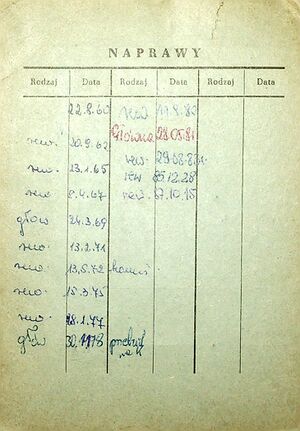 NAPRAWY
Rodzaj Data Rodzaj Data Rodzaj Data
22.8.60 rew
rew. 20.9.62 Główna 28.05.81
rew. 13.1.65 rew. 29.08.83r.
rew 8.4.67 rew 85.12.28
rew. 87.10.15
głów 24.3.69
rew. 13.2.71
rew. 13.5.72
rew. 15.3.75
rew. 18.1.77
głów 30.1178